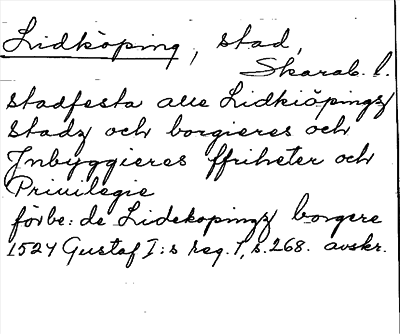 Lidköping, stad,
Skarab. l.
stadfesta alle Lidkiöpings
stadz och borgieres och
Jnbyggieres ffriheter och
Priuilegie
förbe: de Lidekopingz borgere
1524 Gustaf I:s reg. 1, s. 268. avskr.